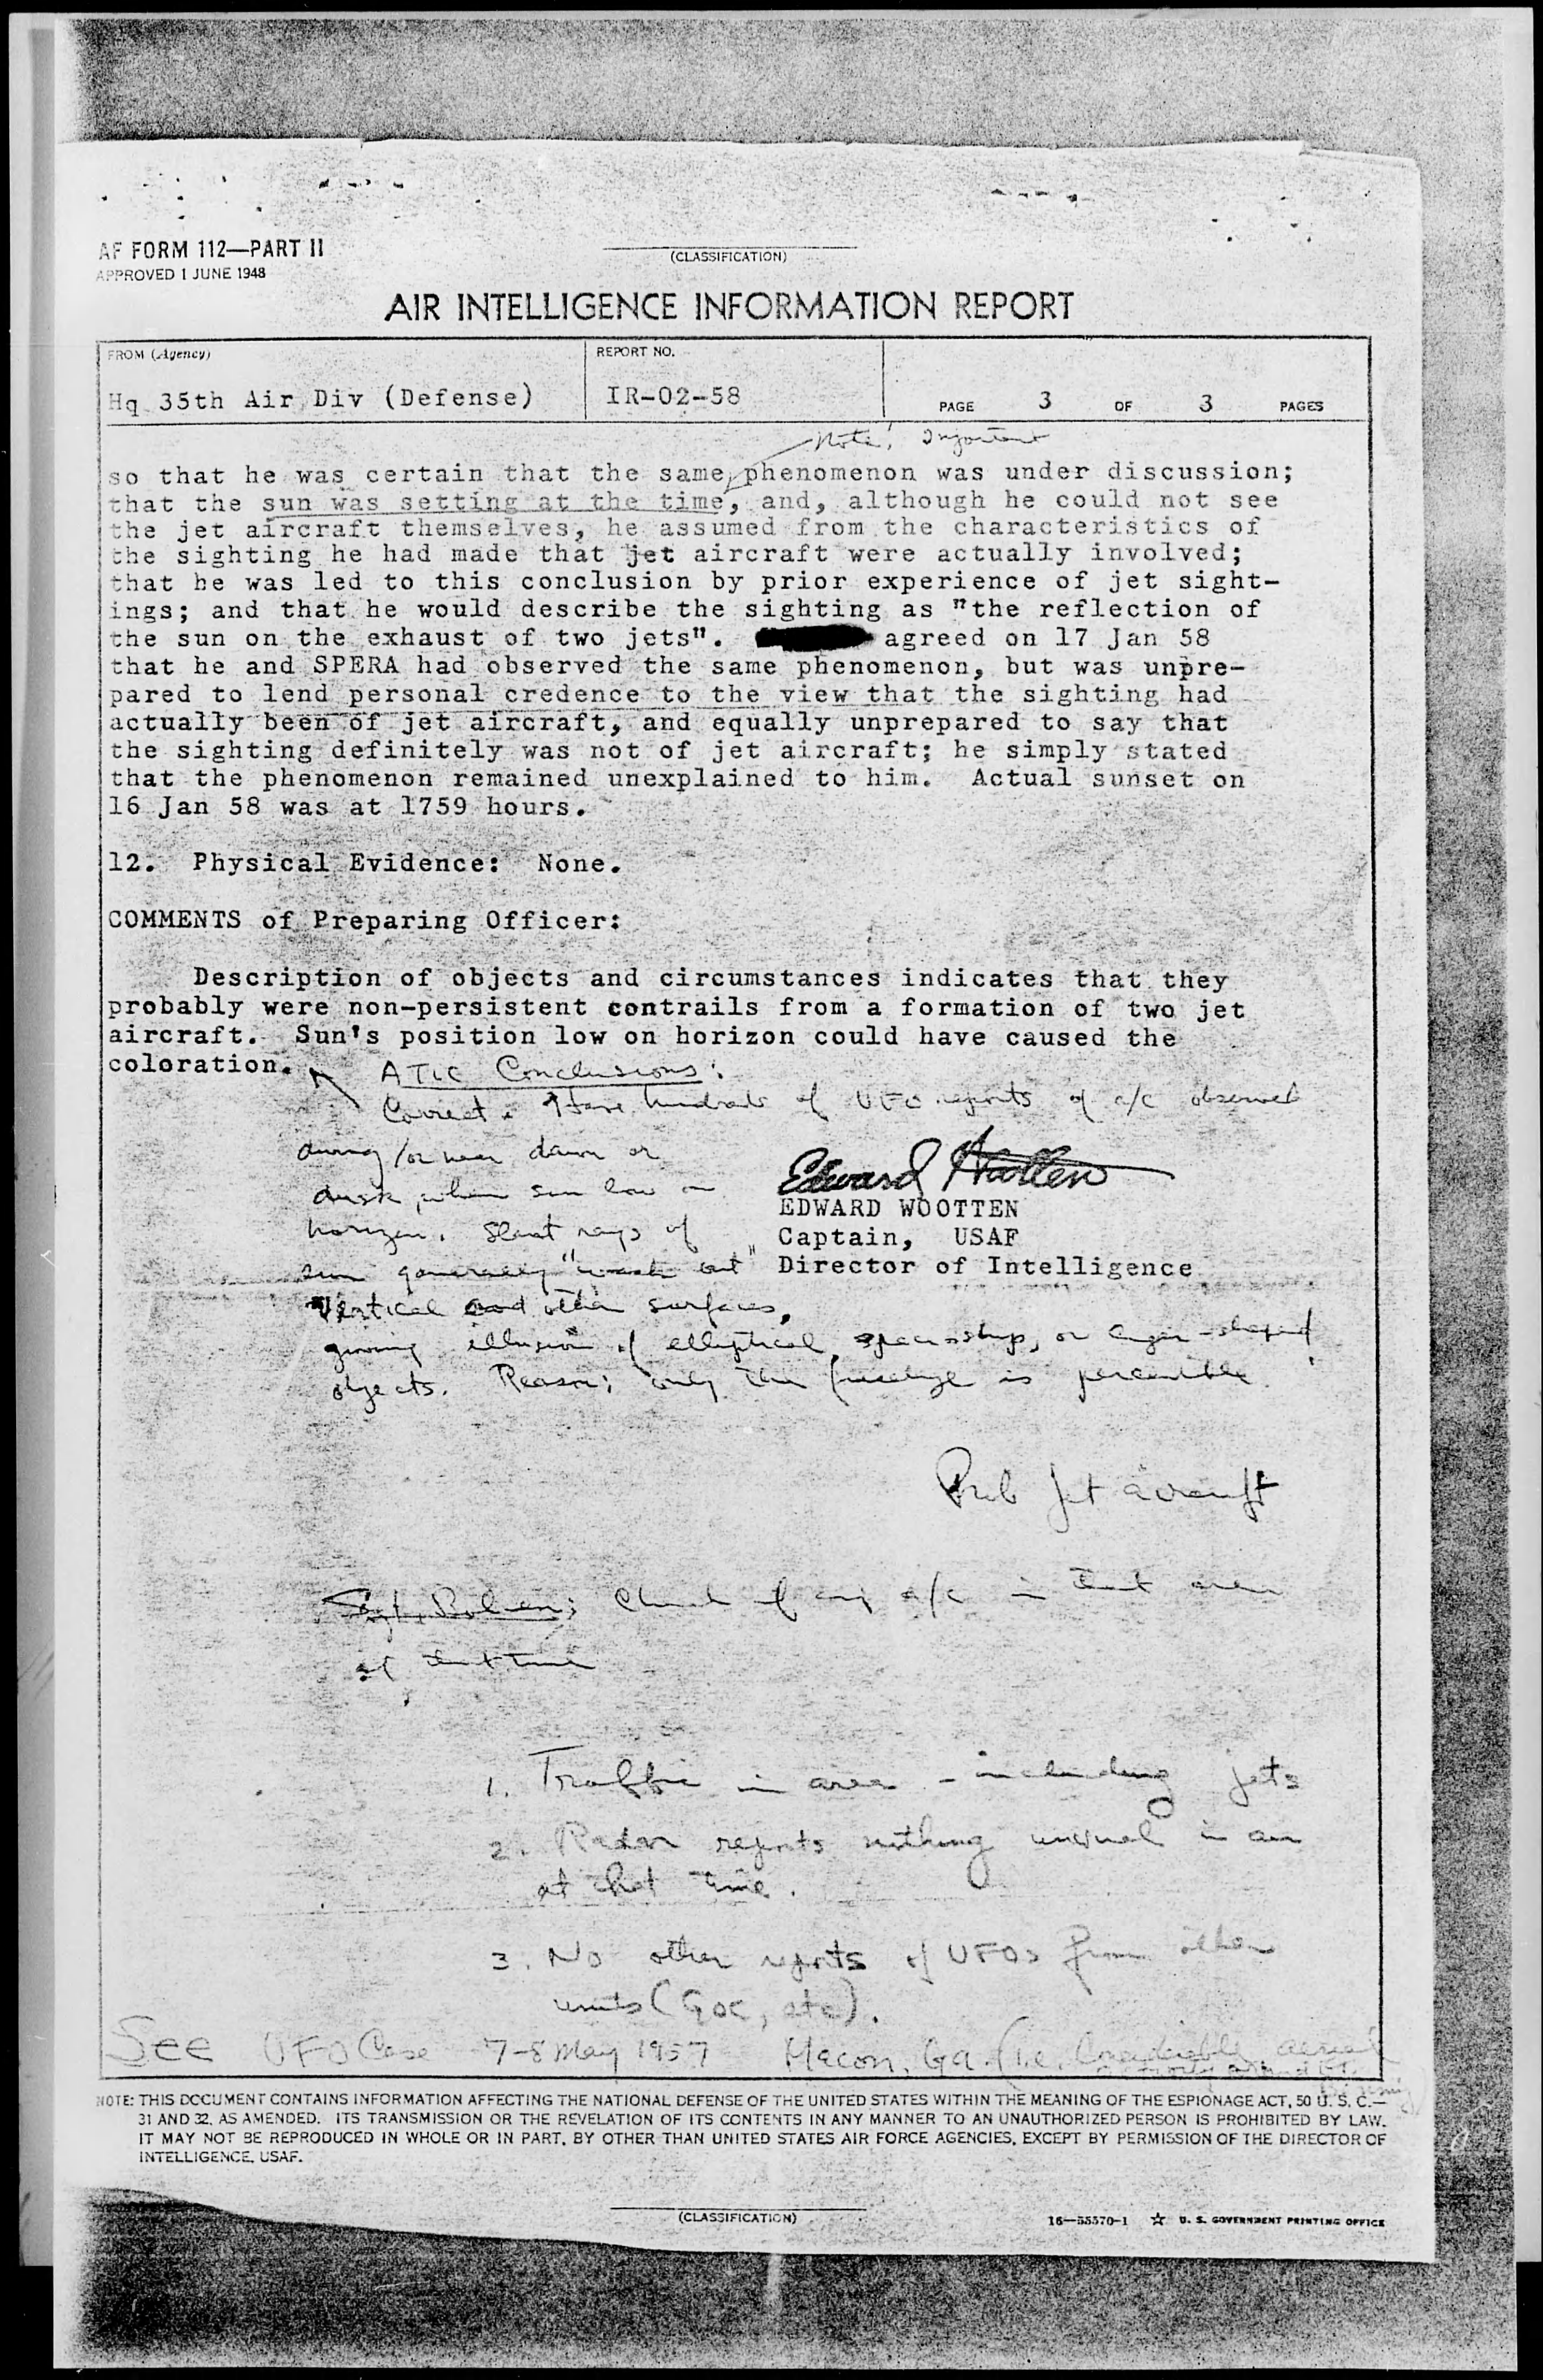 AF FORM 112—PART II
APPROVED 1 JUNE 1948
(CLASSIFICATION)
AIR INTELLIGENCE INFORMATION REPORT
FROM (Agency)
REPORT NO.
Hq 35th Air Div (Defense)
IR-02-58
PAGE 3 OF 3 PAGES
Note! Important
so that he was certain that the same phenomenon was under discussion;
that the sun was setting at the time, and, although he could not see
the jet aircraft themselves, he assumed from the characteristics of
the sighting he had made that jet aircraft were actually involved;
that he was led to this conclusion by prior experience of jet sight-
ings; and that he would describe the sighting as "the reflection of
the sun on the exhaust of two jets". agreed on 17 Jan 58
that he and SPERA had observed the same phenomenon, but was unpre-
pared to lend personal credence to the view that the sighting had
actually been of jet aircraft, and equally unprepared to say that
the sighting definitely was not of jet aircraft; he simply stated
that the phenomenon remained unexplained to him. Actual sunset on
16 Jan 58 was at 1759 hours.
12. Physical Evidence: None.
COMMENTS of Preparing Officer:
Description of objects and circumstances indicates that they
probably were non-persistent contrails from a formation of two jet
aircraft. Sun's position low on horizon could have caused the
coloration.
ATIC Conclusions:
Correct. Have hundreds of UFO reports of a/c observed
during/or near dawn or
dusk, when sun low on
horizon. Slant rays of
sun generally "wash out"
vertical and other surfaces,
giving illusion of elliptical, spaceship, or cigar-shaped
objects. Reason: only the fuselage is perceptible.
Edward Wootten
EDWARD WOOTTEN
Captain, USAF
Director of Intelligence
Prob Jet aircraft
Sgt. Check if any a/c in that area
at that time
1. Traffic in area - including jets
2. Radar reports nothing unusual in air
at that time.
3. No other reports of UFOs from other
units (GOC, etc).
See UFO Case 7-8 May 1957 Macon, Ga. (i.e. Considerable aerial
NOTE: THIS DOCUMENT CONTAINS INFORMATION AFFECTING THE NATIONAL DEFENSE OF THE UNITED STATES WITHIN THE MEANING OF THE ESPIONAGE ACT, 50 U. S. C.—
31 AND 32, AS AMENDED. ITS TRANSMISSION OR THE REVELATION OF ITS CONTENTS IN ANY MANNER TO AN UNAUTHORIZED PERSON IS PROHIBITED BY LAW.
IT MAY NOT BE REPRODUCED IN WHOLE OR IN PART, BY OTHER THAN UNITED STATES AIR FORCE AGENCIES, EXCEPT BY PERMISSION OF THE DIRECTOR OF
INTELLIGENCE, USAF.
(CLASSIFICATION)
16—55570-1 ☆ U. S. GOVERNMENT PRINTING OFFICE